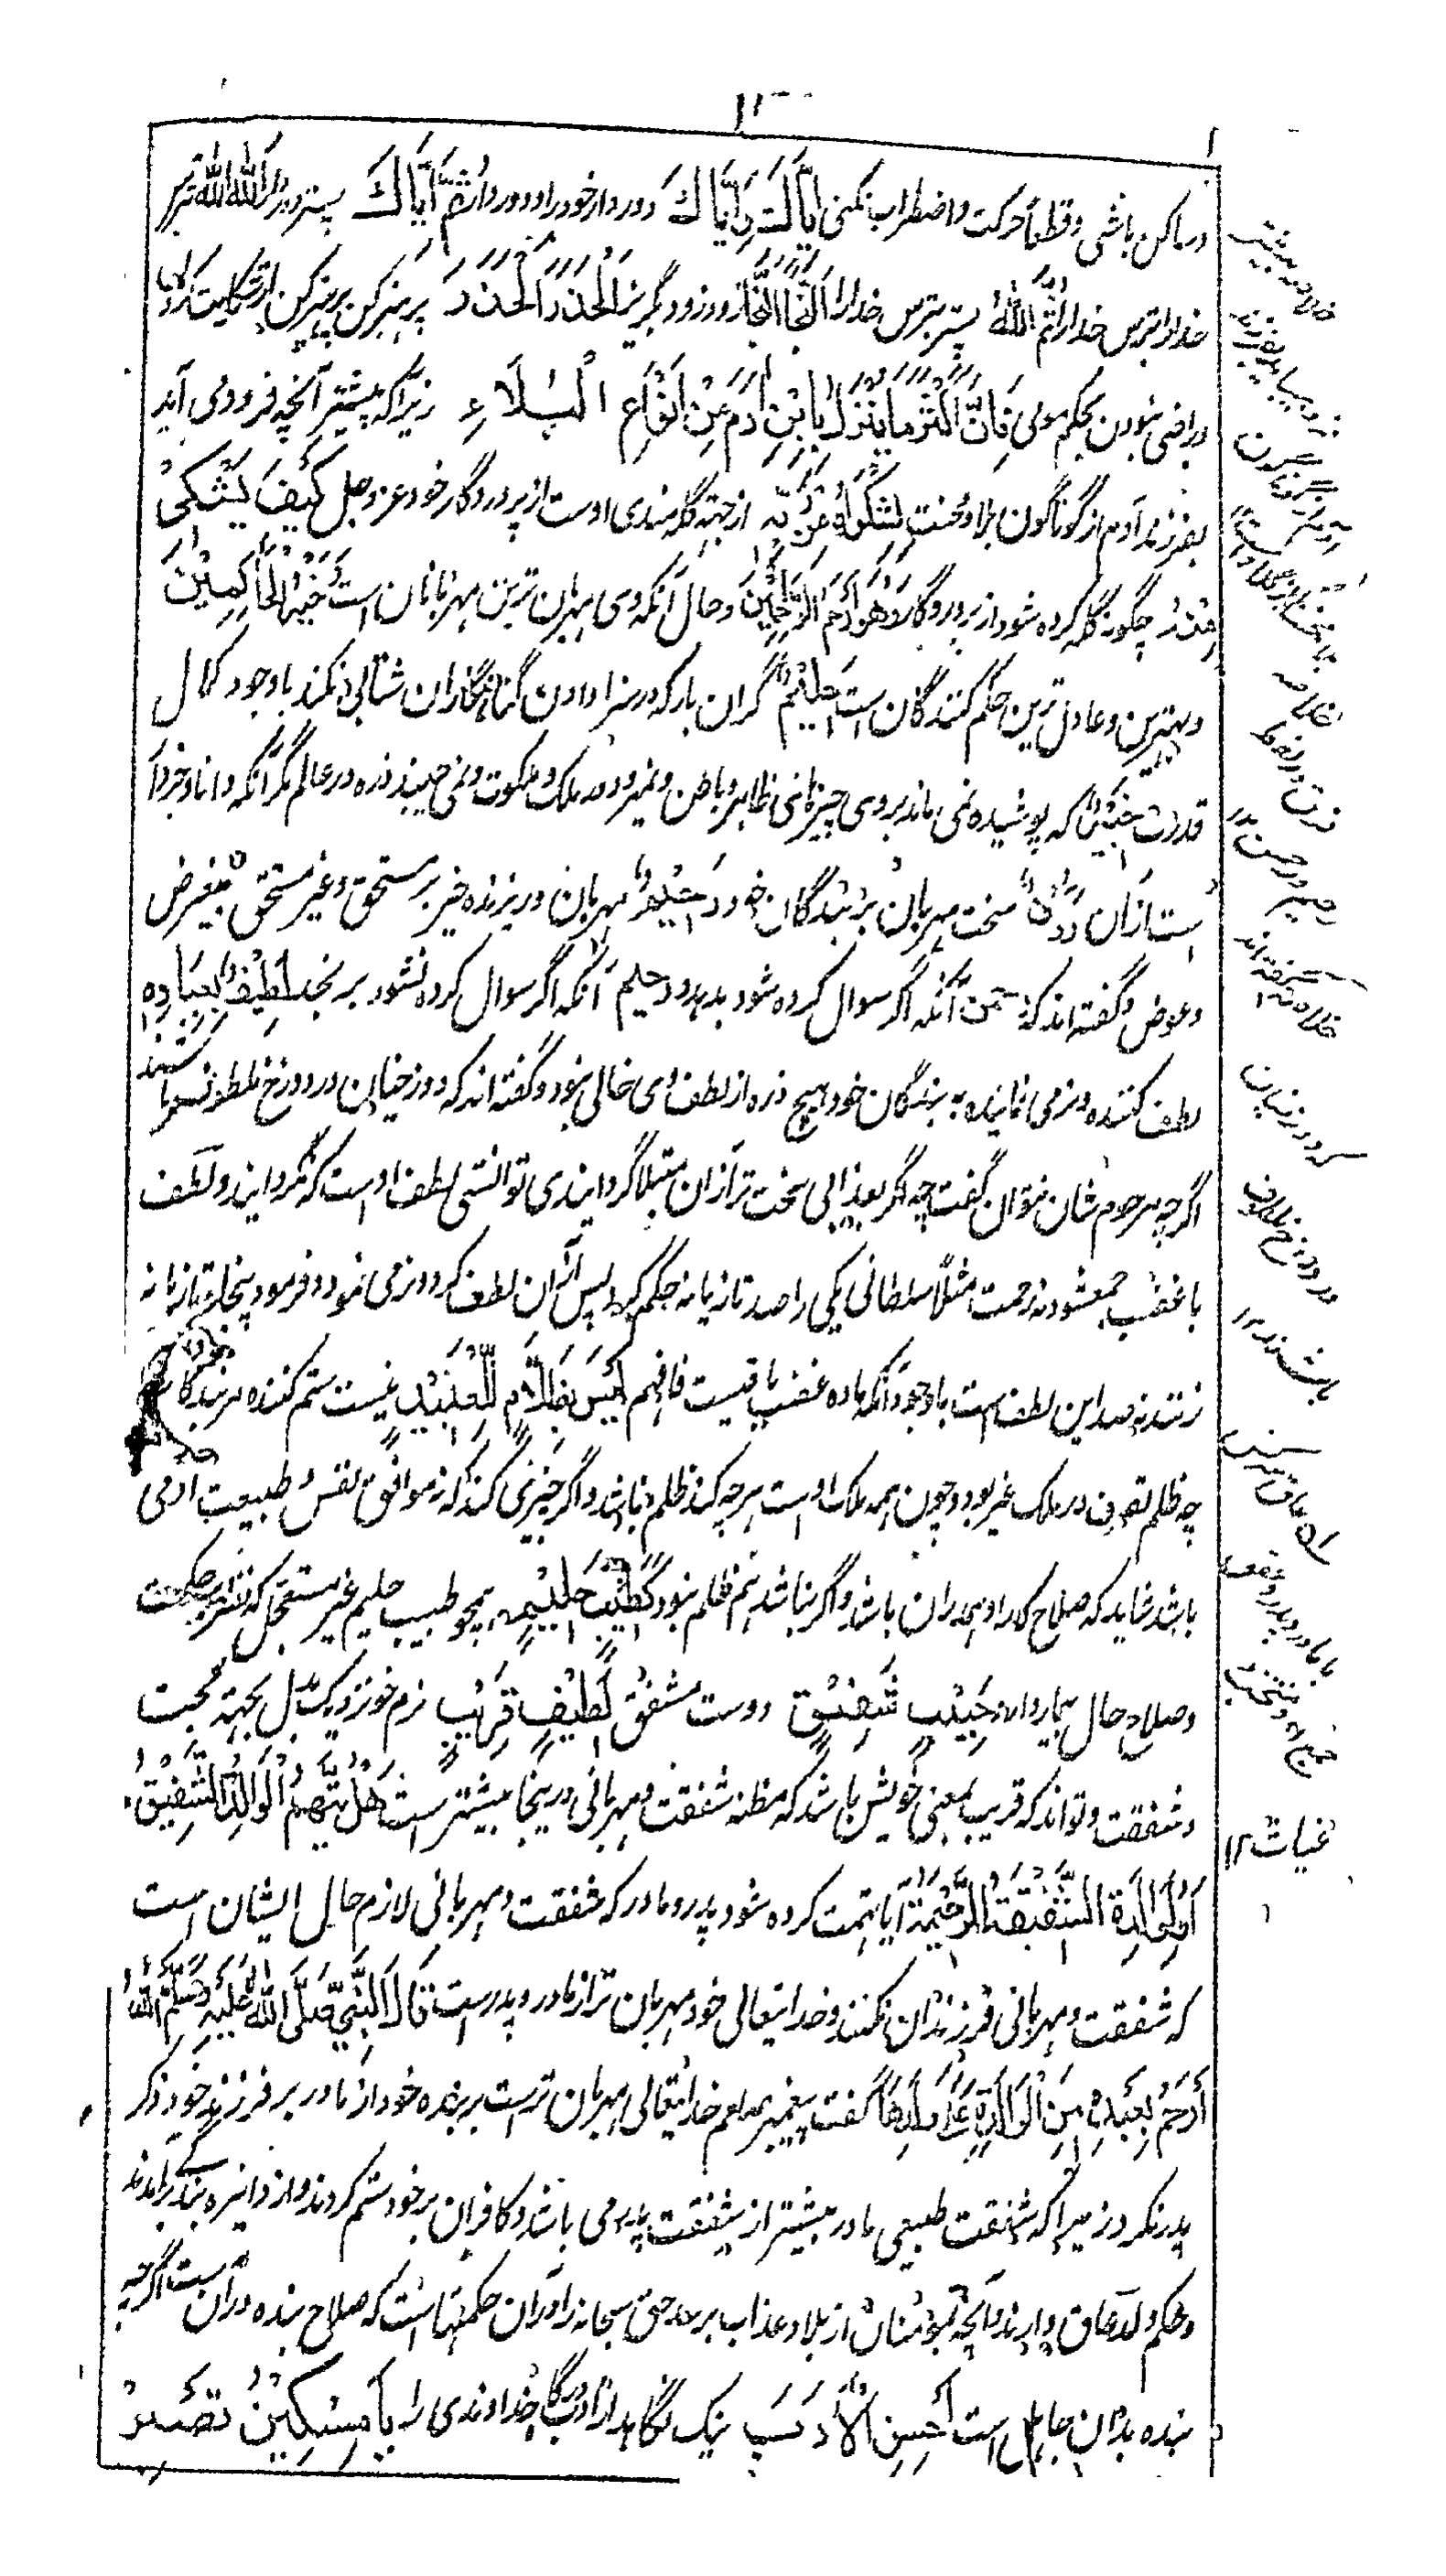 در ساکن باشی و قطعا حرکت و اضطراب نکنی اِیَّاكَ وَاِیَّاكَ دور دار خود را و دور دار ثُمَّ اِیَّاكَ پستر دور دار اَللّٰهَ اَللّٰهَ بترس
خدا را بترس خدا را ثُمَّ اللّٰهَ پستر بترس خدا را اَلنَّجَا اَلنَّجَا زود زود گریز اَلْحَذَرَ اَلْحَذَرَ پرهیز کن پرهیز کن از شکایت کردن
و راضی نبودن بحکم مولی فَاِنَّ اَکْثَرَ مَا یَنْزِلُ بِابْنِ اٰدَمَ مِنْ اَنْوَاعِ الْبَلَاءِ زیرا که بیشتر آنچه فرود می آید
بفرزند آدم از گوناگون بلا و محنت لِشَکْوَاهُ مِنْ رَبِّهٖ از جهته گله مندی اوست از پروردگار خود عز و جل کَیْفَ یُشْکٰی
مِنْهُ چگونه گله کرده شود از پروردگار وَهُوَ اَرْحَمُ الرَّاحِمِیْنَ و حال آنکه وی مهربان ترین مهربانان است وَخَیْرُ الْحَاکِمِیْنَ
و بهترین و عادل ترین حکم کنندگان است حَلِیْمٌ گران بار که در سزا دادن گناهگاران شتابی نکند با وجود کمال
قدرت خَبِیْرٌ که پوشیده نمی ماند بر وی چیزهای ظاهر و باطن و نمیرود در ملک و ملکوت و نمی جنبد ذره در عالم مگر آنکه دانا و خبردار
است ازان رَؤُفٌ سخت مهربان بر بندگان خود رَحِیْمٌ مهربان و ریزنده خیر بر مستحق و غیر مستحق بیغرض
و عوض و گفته اند که رحمن آنکه اگر سوال کرده شود بدهد و رحیم آنکه اگر سوال کرده نشود برنجد لَطِیْفٌ بِعِبَادِهٖ
لطف کننده و نرمی نماینده به بندگان خود هیچ ذره از لطف وی خالی نبود و گفته اند که دوزخیان در دوزخ ملطوف باشند
اگرچه مرحوم شان نتوان گفت چه اگر بعذابی سخت تر ازان مبتلا گردانیدی توانستی لطف اوست که نگردانید و لطف
با غضب جمع شود نه رحمت مثلا سلطانی یکی را صد تازیانه حکم کرد پس ازان لطف کرد و نرمی نمود و فرمود پنجاه تازیانه
زنند نه صد این لطف است با وجود آنکه ماده غضب باقیست فافهم لَیْسَ بِظَلَّامٍ لِّلْعَبِیْدِ نیست ستم کننده مر بندگان
چه ظلم تصرف در ملک غیر بود و چون همه ملک اوست هرچه کند ظلم نباشد و اگر چیزی کند که نه موافق نفس و طبیعت آدمی
باشد شاید که صلاح کار او هم دران باشد و اگر نباشد هم ظلم نبود کَطَبِیْبٍ حَلِیْمٍ همچو طبیب حلیم غیر مستعجل که نظر بر حکمت
و صلاح حال بیمار دارد حَبِیْبٍ شَفِیْقٍ دوست مشفق لَطِیْفٍ قَرِیْبٍ نرم خو نزدیک دل بجهته محبت
و شفقت و تواند که قریب بمعنی خویش باشد که مظنه شفقت و مهربانی در ینجا بیشتر است هَلْ یُتَّهَمُ الْوَالِدُ الشَّفِیْقُ
اَوِ الْوَالِدَةُ الشَّفِیْقَةُ الرَّحِیْمَةُ آیا تهمت کرده شود پدر و مادر که شفقت و مهربانی لازم حال ایشان است
که شفقت و مهربانی فرزندان نکنند و خدایتعالی خود مهربان تر از مادر و پدر است قَالَ النَّبِیُّ صَلَّی اللّٰهُ عَلَیْهِ وَسَلَّمَ اَللّٰهُ
اَرْحَمُ بِعَبْدِهٖ مِنَ الْوَالِدَةِ عَلٰی وَلَدِهَا گفت پیغمبر صلعم خدایتعالی مهربان تر است بر بنده خود از مادر بر فرزند خود ذکر
پدر نکرد زیرا که شفقت طبیعی مادر بیشتر از شفقت پدر می باشد و کافران بر خود ستم کردند و از دایره بندگی برآمدند
و حکم ولد عاق دارند و آنچه بمؤمنان از بلا و عذاب برسد حق سبحانه را دران حکمتهاست که صلاح بنده دران است اگرچه
بنده بدان جاهل است اَحْسِنِ الْاَدَبَ نیک نگاهدار ادب درگاه خداوندی را یَا مِسْکِیْنُ تَصَبَّرْ
غیاث ۱۲